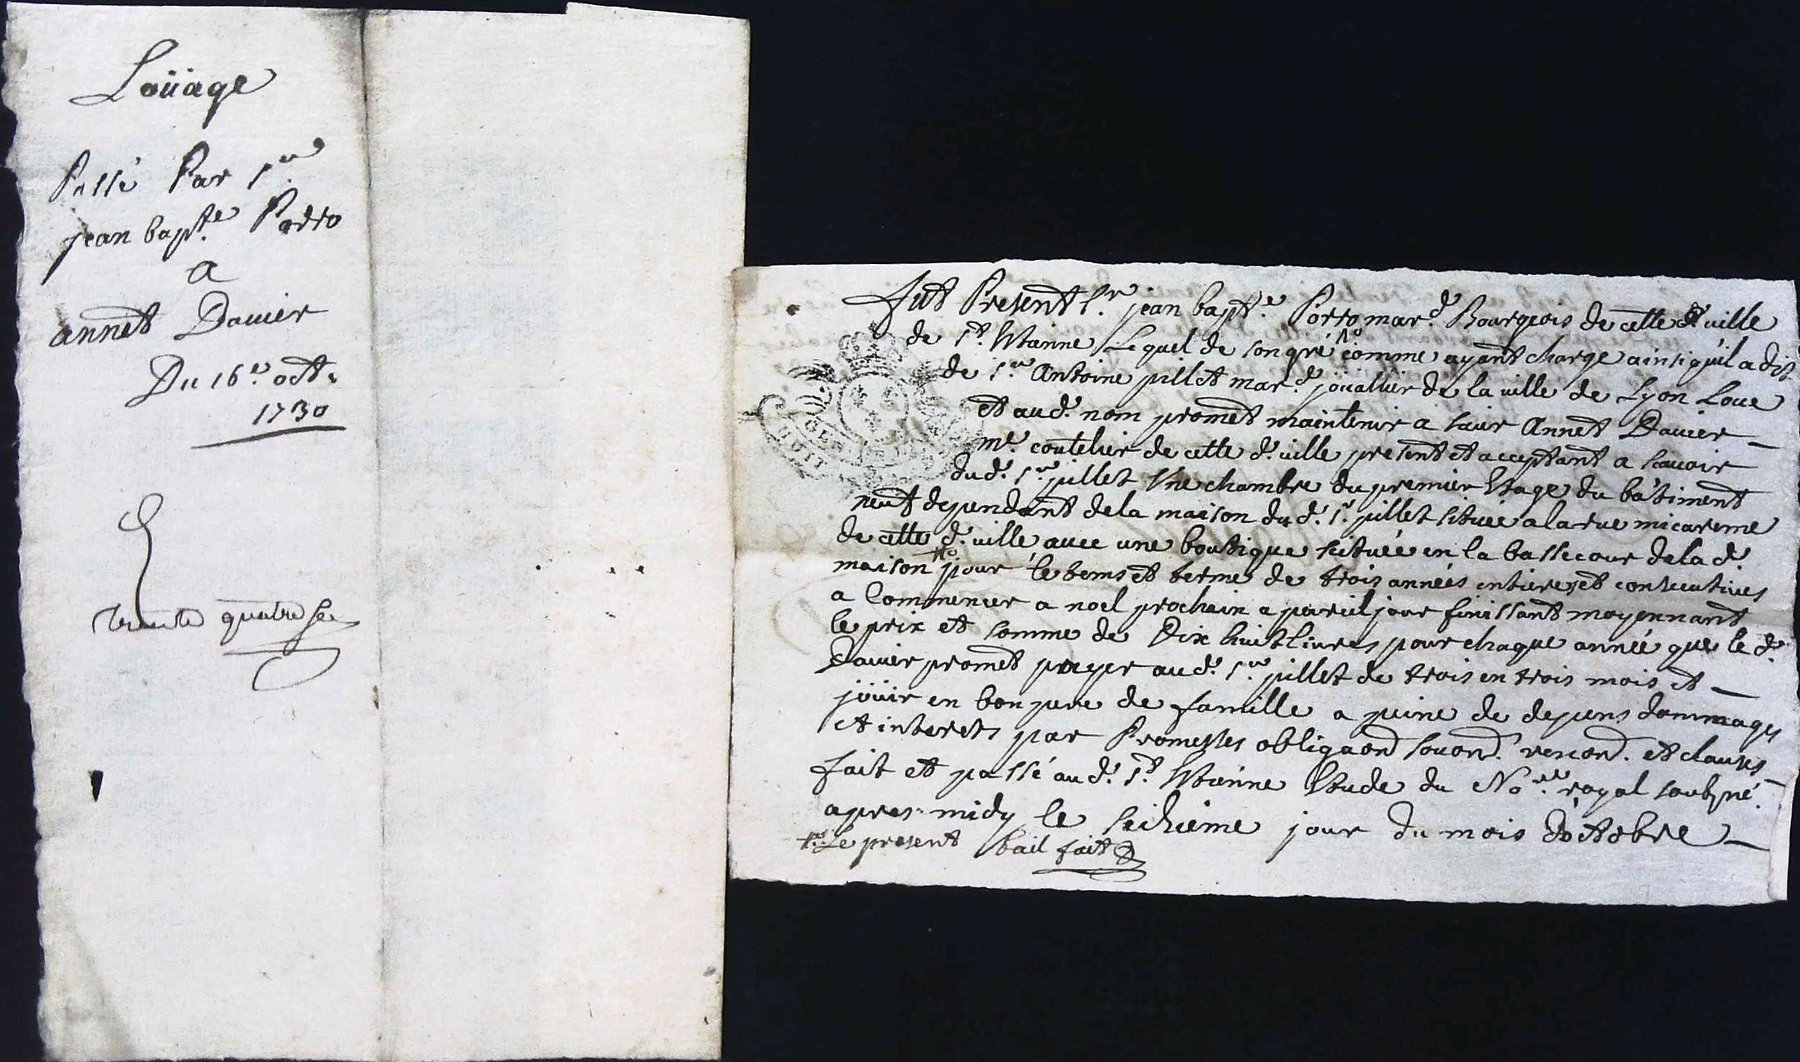 Loüage
Passé Par sr.
jean bapte. Porro
a
annet Dauier
Du 16e. oct.
1730
trente quatre
fut Present sr. jean bapte. Porro mard. Bourgeois de cette d. ville
de st. Etienne Lequel de son gré comme ayant charge ainsi quil a dit
de sr. Antoine pillet mard. joüallier de la ville de Lyon Loue
et aud. nom promet maintenir a sieur Annet Dauier
me. coutelier de cette d. ville present et acceptant a scauoir
dud. sr. pillet Une chambre du premier Etage du bâtiment
neuf dependant de la maison dud. sr. pillet située a la rue micareme
de cette d. ville auec une boutique scituée en la basse cour de la d.
maison pour le tems et terme de trois années entieres et consecutiues
a Commencer a noel prochain a pareil jour finissant moyennant
le prix et somme de Dix huit liures pour chaque année que le d.
Dauier promet payer aud. sr. pillet de trois en trois mois et
joüir en bon pere de famille a peine de depens dommages
et interets par Promesses obligaond. souond. renond. et clauses
fait et passé aud. st. Etienne Etude du Nore. royal soubzné.
apres midy le seizieme jour du mois doctobre
Le present bail fait